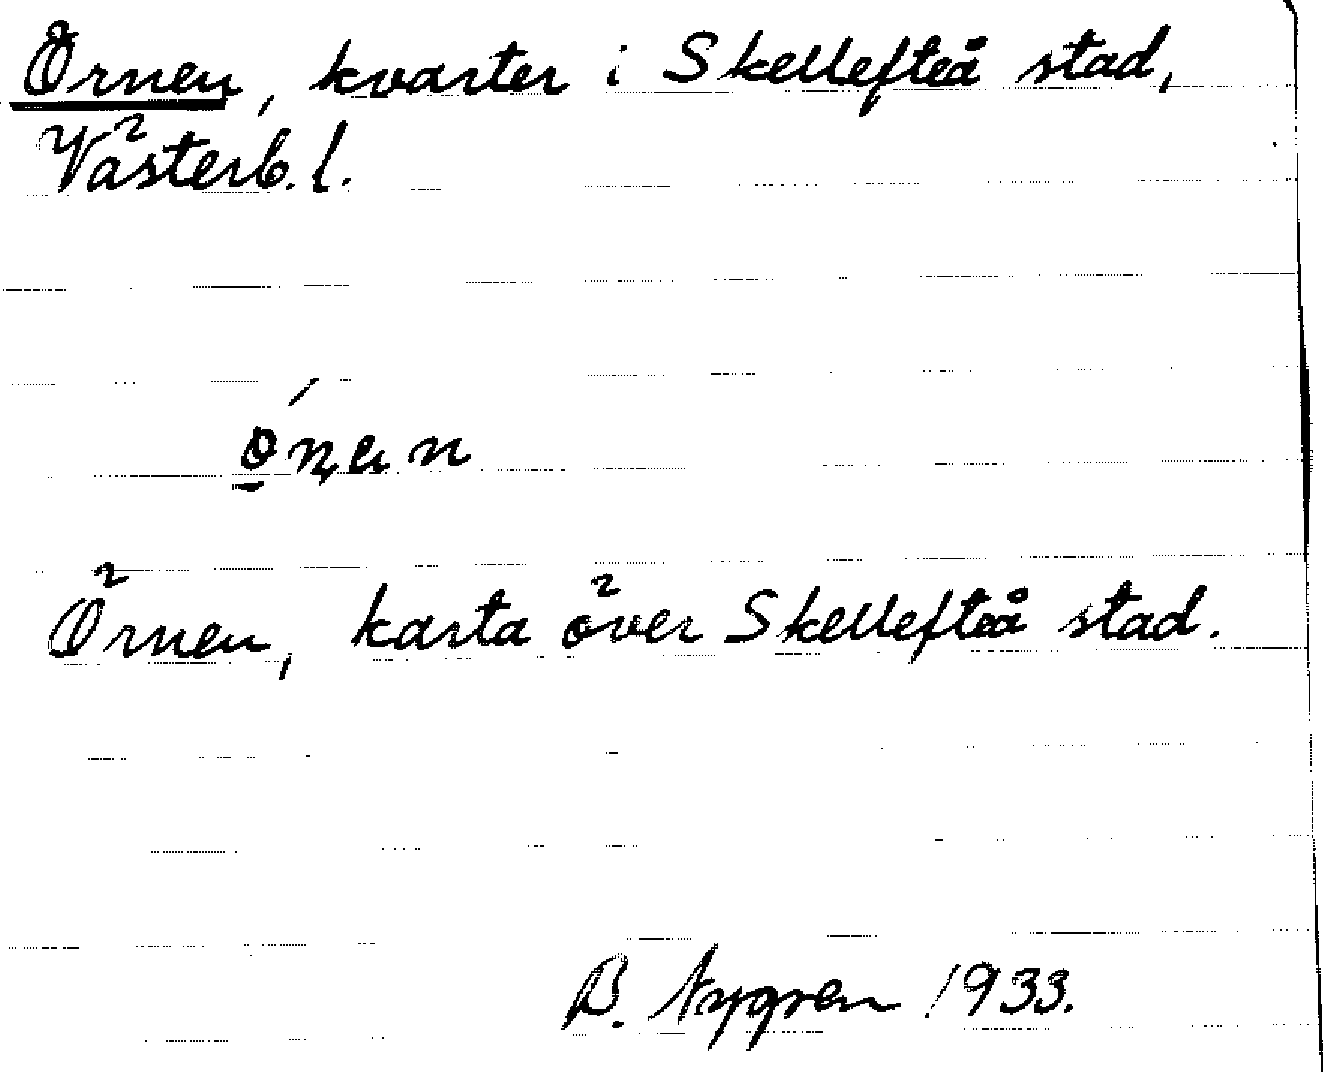 Örnen, kvarter i Skellefteå stad,
Västerb. l.
Örnen, karta över Skellefteå stad.
B. Nygren 1933.